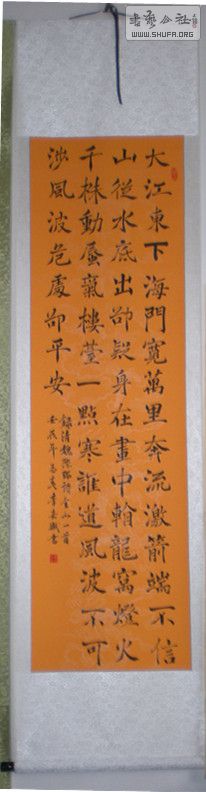 书艺公社
WWW.SHUFA.ORG
大江東下海門寬萬里奔流激箭端不信
山從水底出卻疑身在畫中翰龍窩燈火
千株動蜃氣樓臺一點寒誰道風波不可
涉風波危處卻平安
錄清魏際瑞詩金山一首
壬辰年書